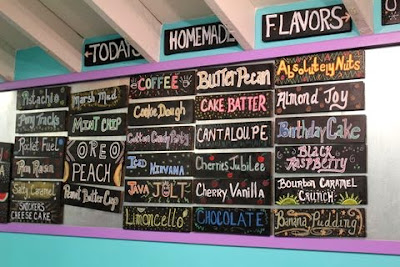 TODAYS HOMEMADE FLAVORS
Pistachio
Pony Tracks
Rocket Fuel
Rum Raisin
Salty Caramel
SNICKERS
CHEESE CAKE
Marsh Mud
MINT CHIP
OREO
PEACH
Peanut Butter Cup
COFFEE
Cookie Dough
Cotton Candy Party
ICED NIRVANA
JAVA JOLT
LIMONCELLO
Butter Pecan
CAKE BATTER
CANTALOUPE
Cherries Jubilee
Cherry Vanilla
CHOCOLATE
Absolutely Nuts
Almond Joy
Birthday Cake
BLACK
RASPBERRY
Bourbon Caramel
CRUNCH
Banana Pudding